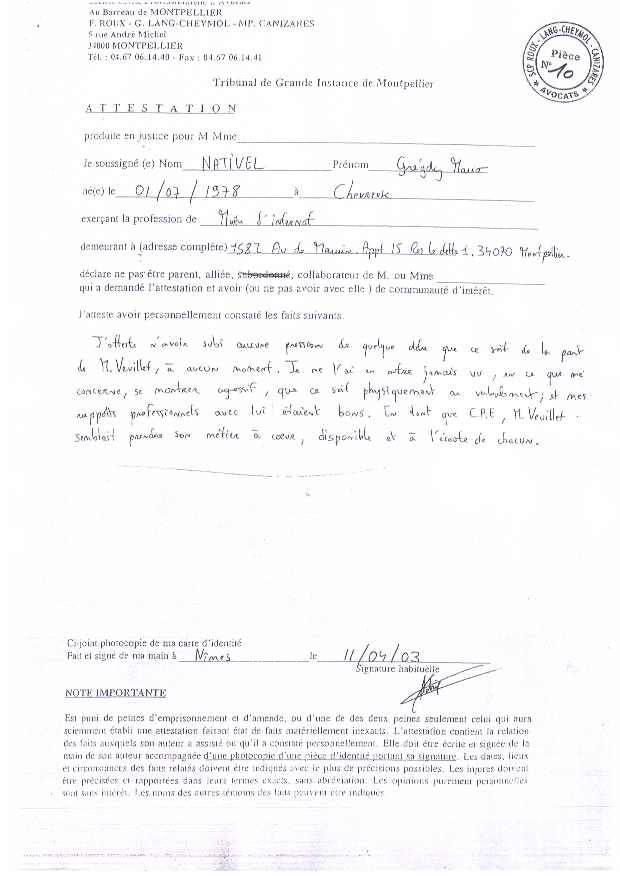 Au Barreau de MONTPELLIER
F. ROUX - G. LANG-CHEYMOL - MP. CANIZARES
5 rue André Michel
34000 MONTPELLIER
Tél. : 04.67 06.14.40 - Fax : 04.67 06.14.41
SCP ROUX - LANG-CHEYMOL - CANIZARES
Pièce
N° 10
AVOCATS
Tribunal de Grande Instance de Montpellier
ATTESTATION
produite en justice pour M Mme
Je soussigné (e) Nom NATIVEL Prénom
né(e) le 01/07/1978 à
exerçant la profession de d'internat
demeurant à (adresse complète) 1587 Av de Appt 15 Res 1, 34070 Montpellier.
déclare ne pas être parent, alliée, subordonné, collaborateur de M. ou Mme
qui a demandé l'attestation et avoir (ou ne pas avoir avec elle ) de communauté d'intérêt.
J'atteste avoir personnellement constaté les faits suivants.
J'atteste n'avoir subi aucune pression de quelque ordre que ce soit de la part
de M. Veuillet, à aucun moment. Je ne l'ai en outre jamais vu, en ce que me
concerne, se montrer agressif, que ce soit physiquement ou verbalement ; et mes
rapports professionnels avec lui étaient bons. En tant que C.P.E, M. Veuillet
semblait prendre son métier à coeur, disponible et à l'écoute de chacun.
Ci-joint photocopie de ma carte d'identité
Fait et signé de ma main à Nîmes le 11/04/03
Signature habituelle
NOTE IMPORTANTE
Est puni de peines d'emprisonnement et d'amende, ou d'une de des deux peines seulement celui qui aura
sciemment établi une attestation faisant état de faits matériellement inexacts. L'attestation contient la relation
des faits auxquels son auteur a assisté ou qu'il a constaté personnellement. Elle doit être écrite et signée de la
main de son auteur accompagnée d'une photocopie d'une pièce d'identité portant sa signature. Les dates, lieux
et circonstances des faits relatés doivent être indiqués avec le plus de précisions possibles. Les injures doivent
être précisées et rapportées dans leurs termes exacts, sans abréviation. Les opinions purement personnelles
sont sans intérêt. Les noms des autres témoins des faits peuvent être indiqués